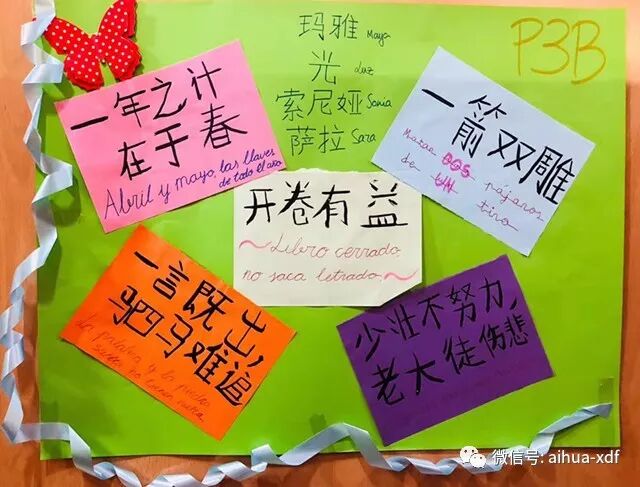 玛雅 Maya
光 Luz
索尼娅 Sonia
萨拉 Sara
P3B
一年之计
在于春
Abril y mayo, las llaves
de todo el año
一箭双雕
Matar DOS pájaros
de UN tiro
开卷有益
~Libro cerrado,
no saca letrado.~
一言既出,
驷马难追
La palabra y la piedra
suelta no tienen vuelta.
少壮不努力,
老大徒伤悲
微信号: aihua-xdf